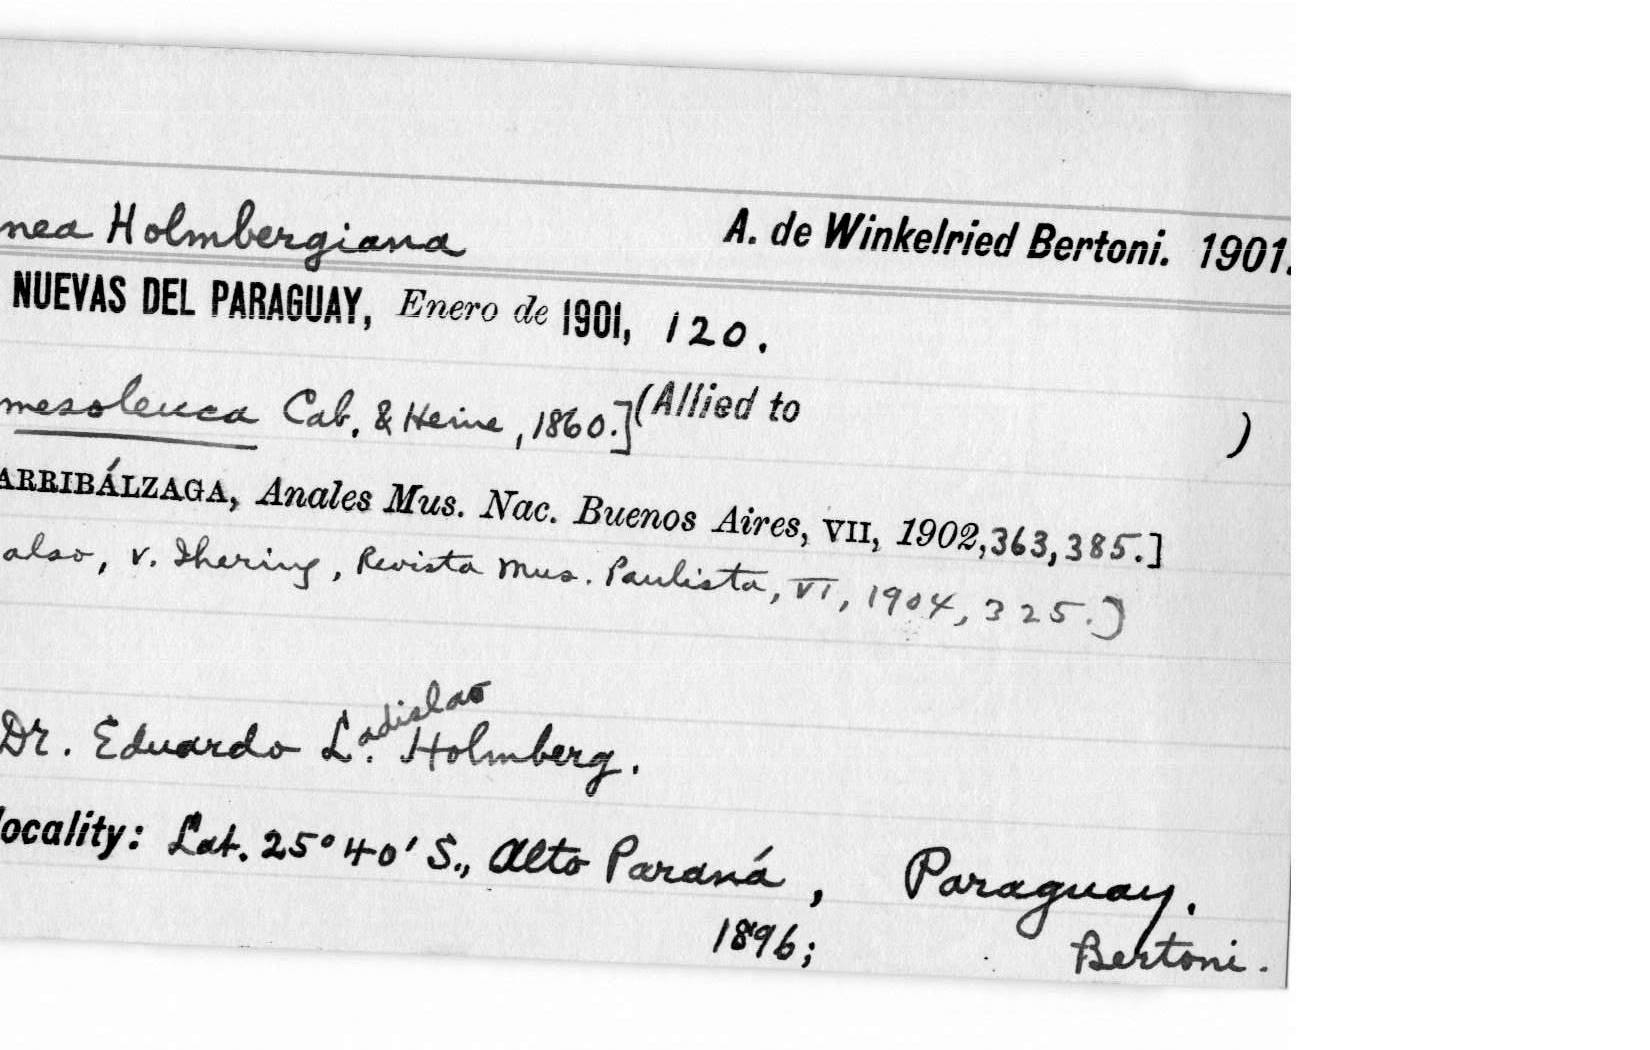 nea Holmbergiana A. de Winkelried Bertoni. 1901.
NUEVAS DEL PARAGUAY, Enero de 1901, 120.
mesoleuca Cab. & Heine, 1860.] (Allied to )
ARRIBÁLZAGA, Anales Mus. Nac. Buenos Aires, VII, 1902, 363, 385.]
also, v. Ihering, Revista Mus. Paulista, VI, 1904, 325.]
Dr. Eduardo Ladislao Holmberg.
locality: Lat. 25° 40' S., Alto Paraná, Paraguay.
1896; Bertoni.